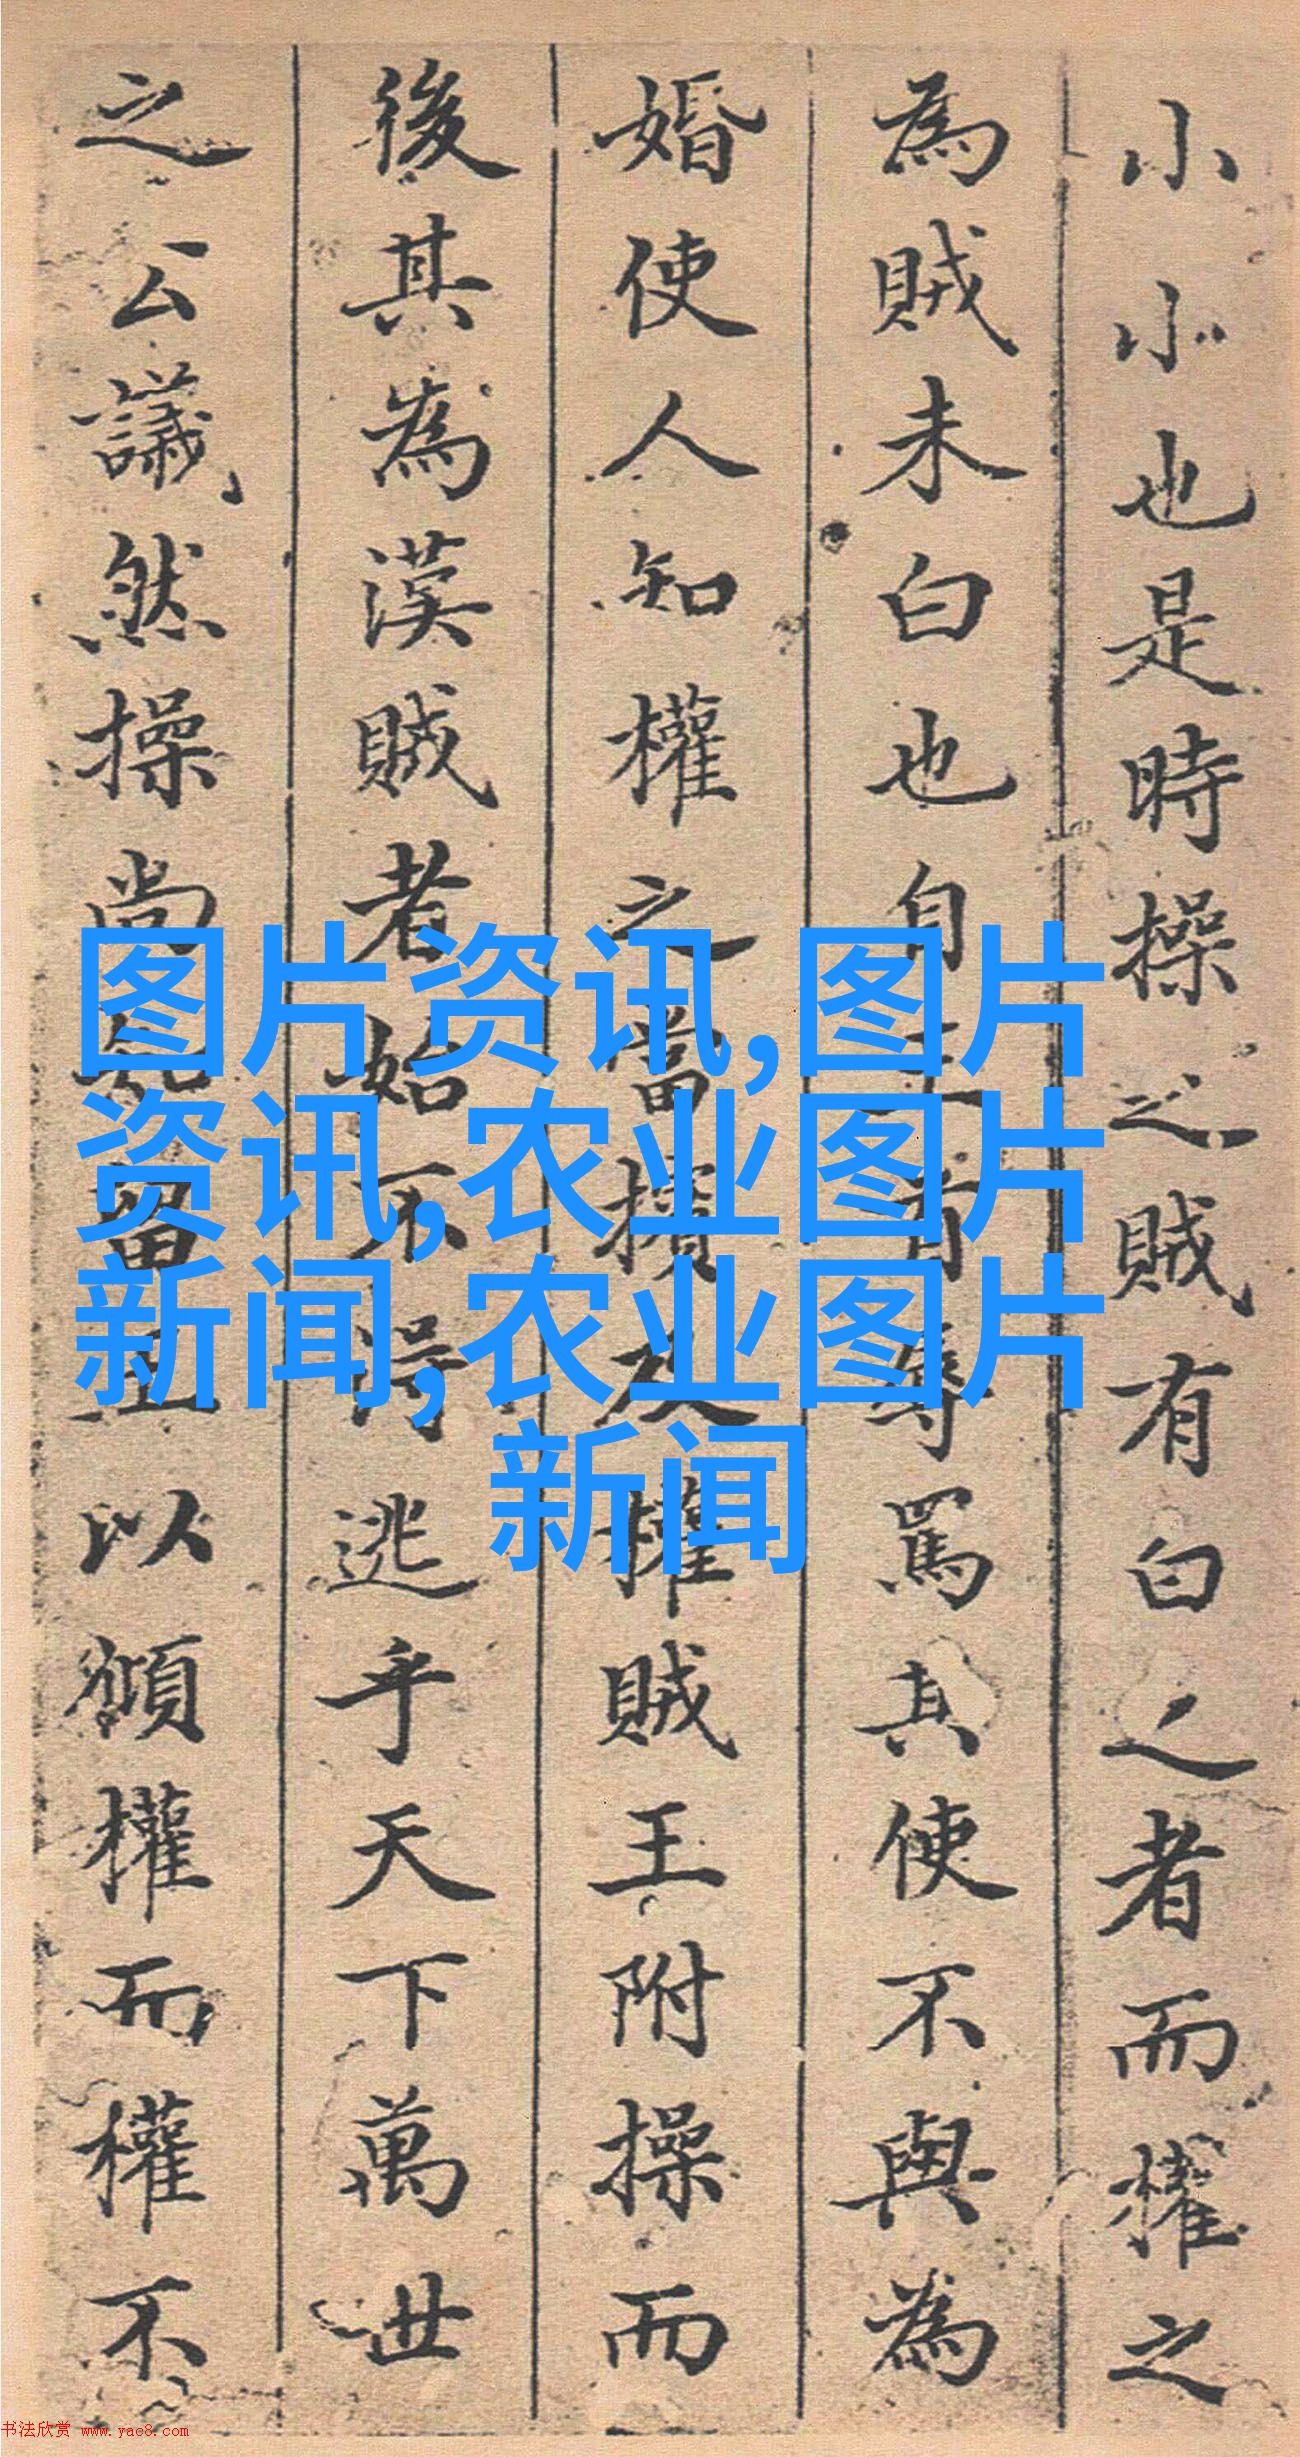 小小也是時操之賊有白之者而權之
為賊未白也自辱罵其使不與為
婚使人知權之當擯權賊王附操而
後其為漢賊者始不得逃乎天下萬世
之公議然操尚以權而權不
图片资讯,图片
资讯,农业图片
新闻,农业图片
新闻
书法欣赏 www.yac8.com